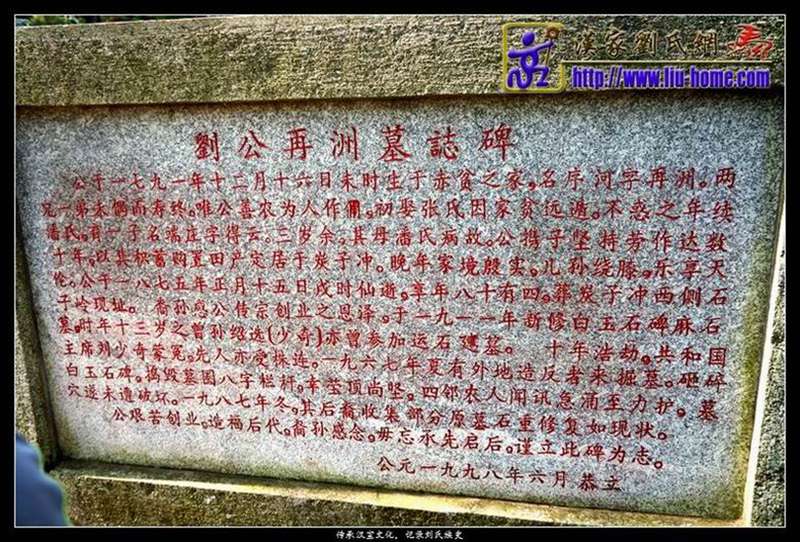 漢家劉氏網
http://www.liu-home.com
劉公再洲墓誌碑
公于一七九一年十二月十六日未时生于赤贫之家。名序河字再洲。两
兄一弟未偶而寿终。唯公善农为人作佣。初娶张氏因家贫远遁。不惑之年续
潘氏。有一子名端庄字得云。三岁余。其母潘氏病故。公携子坚持劳作达数
十年。以其积蓄购置田产定居于炭子冲。晚年家境殷实。儿孙绕膝。乐享天
伦。公于一八七五年正月十五日戌时仙逝。享年八十有四。葬炭子冲西侧石
子岭现址。裔孙感公传宗创业之恩泽。于一九一一年新修白玉石碑麻石
墓。时年十三岁之曾孙绍选(少奇)亦曾参加运石建墓。 十年浩劫。共和国
主席刘少奇蒙冤。先人亦受株连。一九六七年夏有外地造反者来掘墓。砸碎
白玉石碑。捣毁墓围八字栏杆。幸茔顶尚坚。四邻农人闻讯急涌至力护。墓
穴遂未遭破坏。一九八七年冬。其后裔收集部分原墓石重修复如现状。
公艰苦创业。造福后代。裔孙感念。毋忘水先启后。谨立此碑为志。
公元一九九八年六月 恭立
传承汉室文化，记录刘氏族史